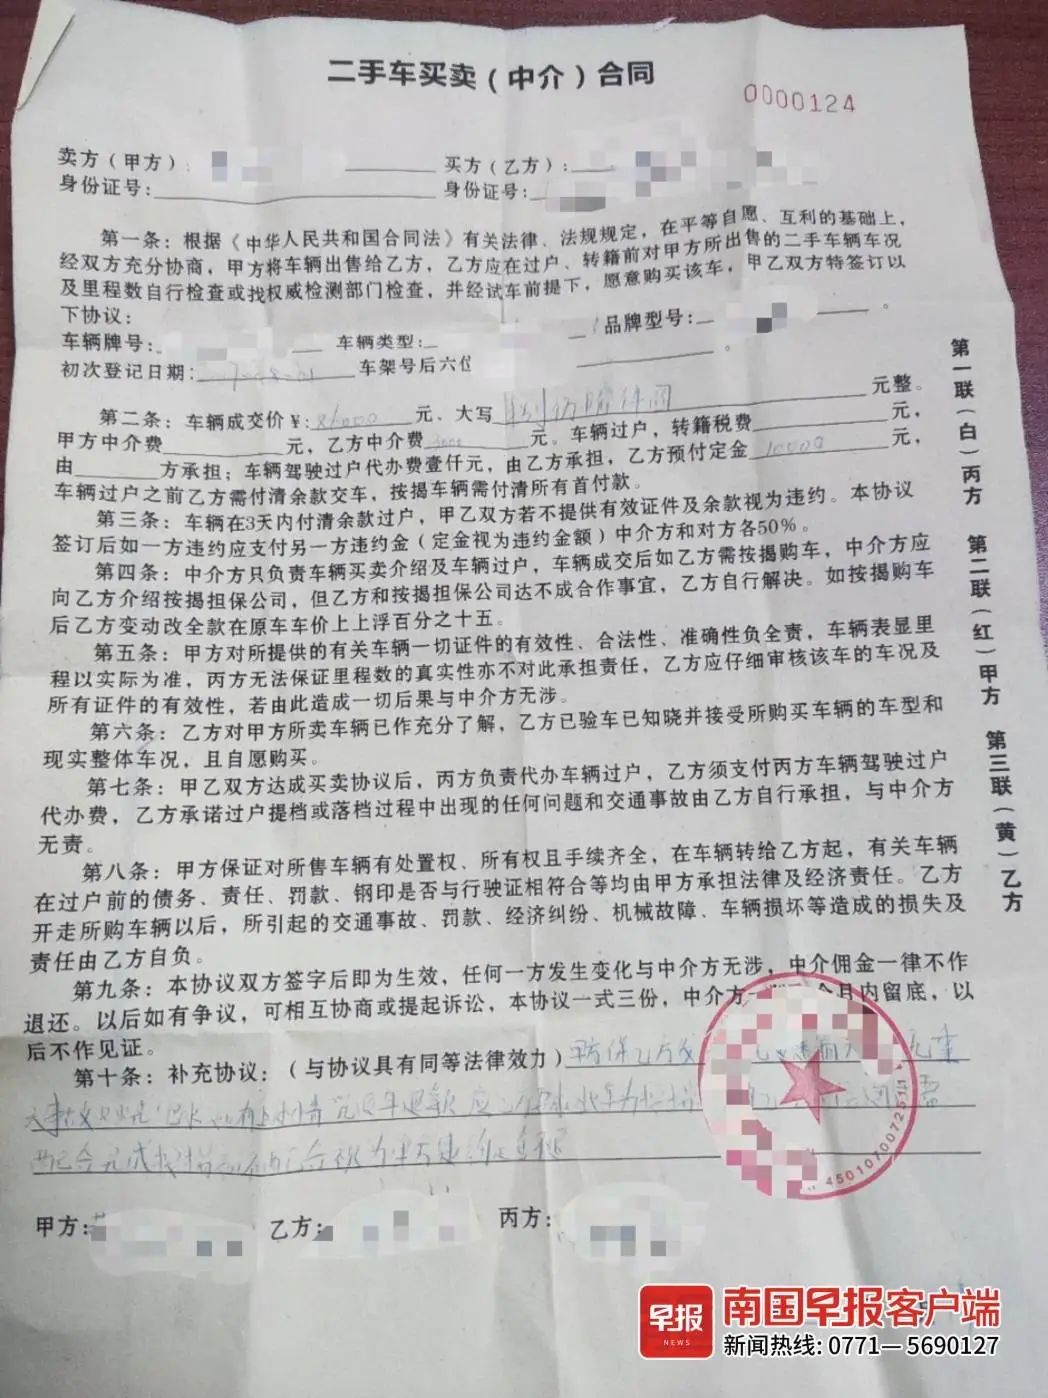 二手车买卖（中介）合同
0000124
卖方（甲方）: 买方（乙方）:
身份证号: 身份证号:
第一条：根据《中华人民共和国合同法》有关法律、法规规定，在平等自愿、互利的基础上，
经双方充分协商，甲方将车辆出售给乙方，乙方应在过户、转籍前对甲方所出售的二手车辆车况
及里程数自行检查或找权威检测部门检查，并经试车前提下，愿意购买该车，甲乙双方特签订以
下协议：
车辆牌号: 车辆类型: 品牌型号: 。
初次登记日期: 车架号后六位 。
第二条：车辆成交价¥: 86000 元、大写 元整。
甲方中介费 元，乙方中介费 3000 元。车辆过户，转籍税费 元，
由 方承担；车辆驾驶过户代办费壹仟元，由乙方承担，乙方预付定金 10000 元，
车辆过户之前乙方需付清余款交车，按揭车辆需付清所有首付款。
第三条：车辆在3天内付清余款过户，甲乙双方若不提供有效证件及余款视为违约。本协议
签订后如一方违约应支付另一方违约金（定金视为违约金额）中介方和对方各50%。
第四条：中介方只负责车辆买卖介绍及车辆过户，车辆成交后如乙方需按揭购车，中介方应
向乙方介绍按揭担保公司，但乙方和按揭担保公司达不成合作事宜，乙方自行解决。如按揭购车
后乙方变动改全款在原车车价上上浮百分之十五。
第五条：甲方对所提供的有关车辆一切证件的有效性、合法性、准确性负全责，车辆表显里
程以实际为准，丙方无法保证里程数的真实性亦不对此承担责任，乙方应仔细审核该车的车况及
所有证件的有效性，若由此造成一切后果与中介方无涉。
第六条：乙方对甲方所卖车辆已作充分了解，乙方已验车已知晓并接受所购买车辆的车型和
现实整体车况，且自愿购买。
第七条：甲乙双方达成买卖协议后，丙方负责代办车辆过户，乙方须支付丙方车辆驾驶过户
代办费，乙方承诺过户提档或落档过程中出现的任何问题和交通事故由乙方自行承担，与中介方
无责。
第八条：甲方保证对所售车辆有处置权、所有权且手续齐全，在车辆转给乙方起，有关车辆
在过户前的债务、责任、罚款、钢印是否与行驶证相符合等均由甲方承担法律及经济责任。乙方
开走所购车辆以后，所引起的交通事故、罚款、经济纠纷、机械故障、车辆损坏等造成的损失及
责任由乙方自负。
第九条：本协议双方签字后即为生效，任何一方发生变化与中介方无涉，中介佣金一律不作
退还。以后如有争议，可相互协商或提起诉讼，本协议一式三份，中介方 个月内留底，以
后不作见证。
第十条：补充协议：（与协议具有同等法律效力）
4501070072511
甲方: 乙方: 丙方:
第一联（白）丙方
第二联（红）甲方
第三联（黄）乙方
早报
NEWS
南国早报客户端
新闻热线: 0771—5690127